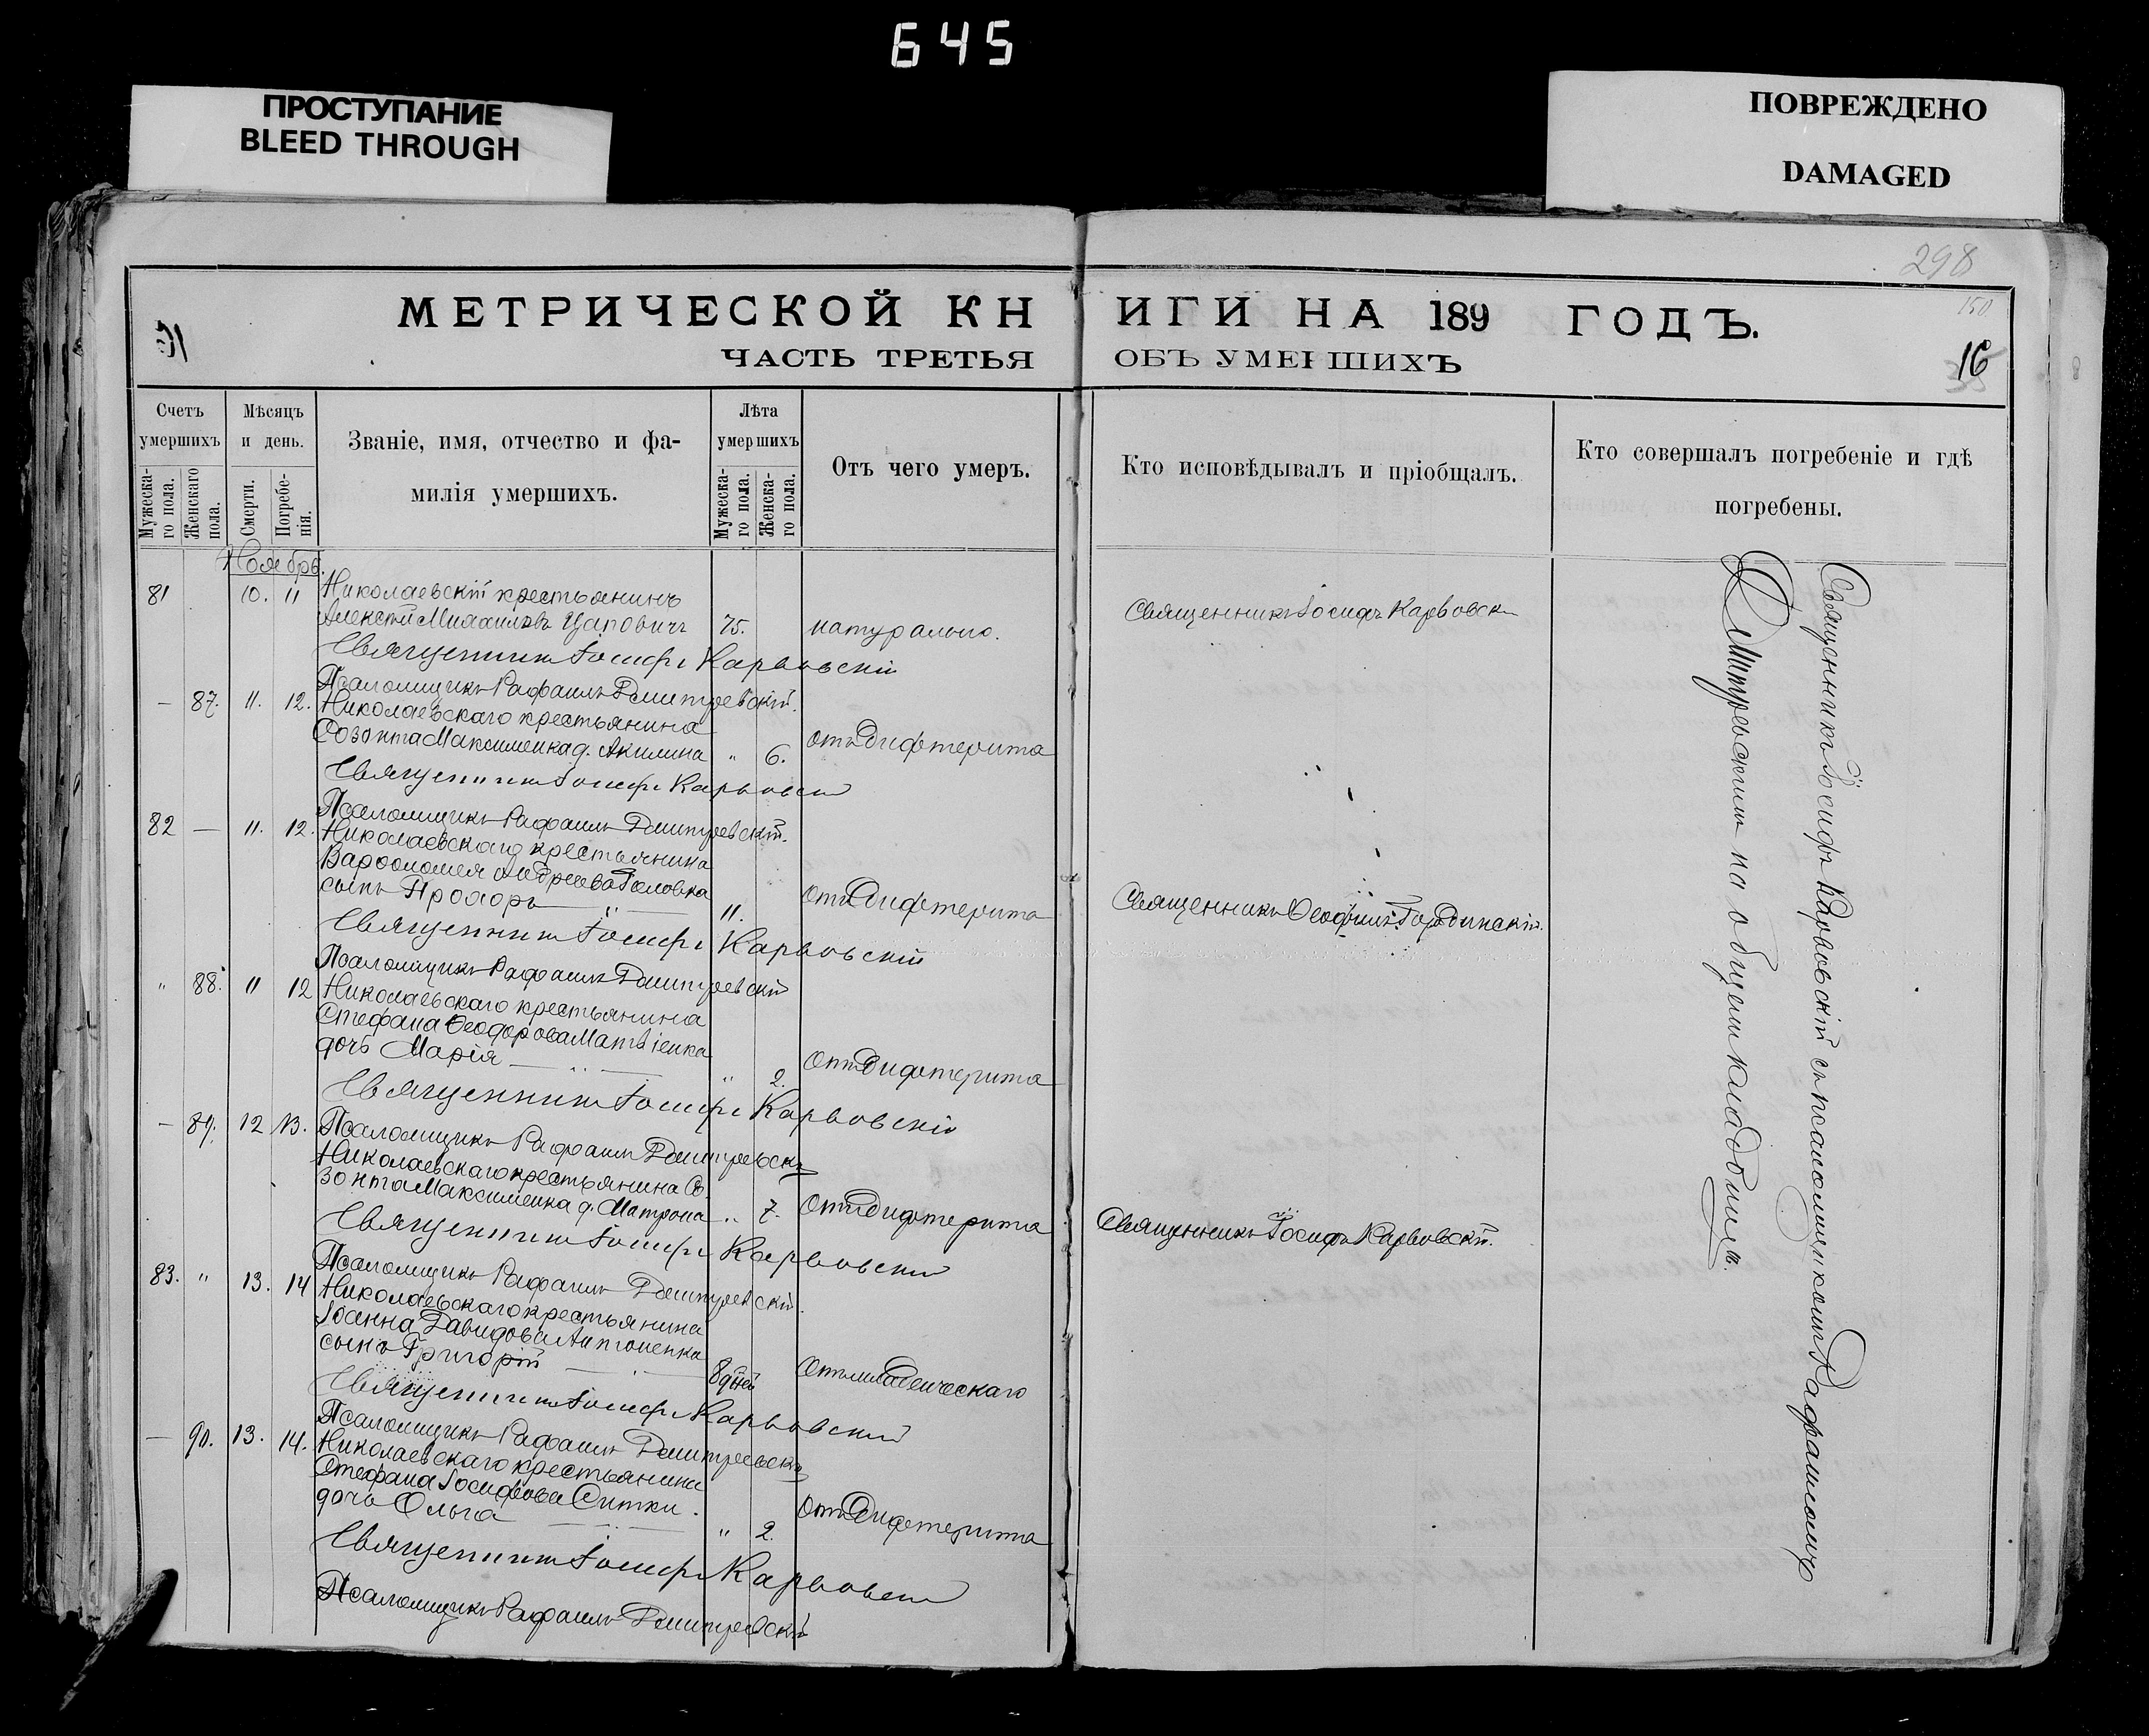 645
ПРОСТУПАНИЕ
BLEED THROUGH
ПОВРЕЖДЕНО
DAMAGED
298
150
МЕТРИЧЕСКОЙ КНИГИ НА 189 ГОДЪ.
16
ЧАСТЬ ТРЕТЬЯ ОБЪ УМЕРШИХЪ
Счетъ умершихъ
Мужеска-го пола.
Женскаго пола.
Мѣсяцъ и день.
Смерти.
Погребе-нія.
Званіе, имя, отчество и фа-
милія умершихъ.
Лѣта умершихъ
Мужеска-го пола.
Женска-го пола.
Отъ чего умеръ.
Кто исповѣдывалъ и пріобщалъ.
Кто совершалъ погребеніе и гдѣ
погребены.
Ноябрь.
81 10. 11 Николаевскій крестьянинъ
Алексѣй Михаиловъ Цаповичъ 75. натурально. Священникъ Іосифъ Карвовск
Священникъ Іосифъ Карвовскій
Псаломщикъ Рафаилъ Дмитревскій.
— 87. 11. 12. Николаевскаго крестьянина
Созонта Максименка д. Акилина " 6. отъ Дифтерита
Священникъ Іосифъ Карвовскій
Псаломщикъ Рафаилъ Дмитревскій.
82 — 11. 12. Николаевскаго крестьянина
Варфоломея Андреева Головка
сынъ Прохоръ — " — 11. Отъ Дифтерита Священникъ Ѳеофилъ Городинскій.
Священникъ Іосифъ Карвовскій
Псаломщикъ Рафаилъ Дмитревскій
" 88. 11 12 Николаевскаго крестьянина
Стефана Ѳеодорова Матвіенка
дочь Марія — " — " 2. Отъ Дифтерита
Священникъ Іосифъ Карвовскій
— 89. 12 13. Псаломщикъ Рафаилъ Дмитревскі
Николаевскаго крестьянина Со
зонта Максименка д. Матрона " 7. Отъ Дифтерита Священникъ Іосифъ Карвовскій.
Священникъ Іосифъ Карвовскій
Псаломщикъ Рафаилъ Дмитревскій.
83. " 13. 14 Николаевскаго крестьянина
Іоанна Давидова Антоненка
сынъ Григорій — 8 дней Отъ младенческаго
Священникъ Іосифъ Карвовскій
Псаломщикъ Рафаилъ Дмитревскі
— 90. 13. 14. Николаевскаго крестьянина
Стефана Іосифова Ситки.
дочь Ольга — " 2. Отъ Дифтерита
Священникъ Іосифъ Карвовскій
Псаломщикъ Рафаилъ Дмитревскій
Священникъ Іосифъ Карвовскій съ псаломщикомъ Рафаиломъ
Дмитревскимъ на общемъ кладбищѣ.